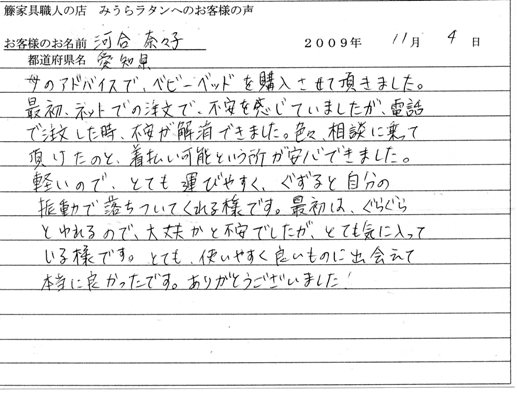 籐家具職人の店 みうらラタンへのお客様の声
お客様のお名前 河合 奈々子 2009年 11月 4日
都道府県名 愛知県
母のアドバイスで、ベビーベッドを購入させて頂きました。
最初、ネットでの注文で、不安を感じていましたが、電話
で注文した時、不安が解消できました。色々、相談に乗って
頂けたのと、着払い可能という所が安心できました。
軽いので、とても運びやすく、ぐずると自分の
振動で落ちついてくれる様です。最初は、ぐらぐら
とゆれるので、大丈夫かと不安でしたが、とても気に入って
いる様です。とても、使いやすく良いものに出会えて
本当に良かったです。ありがとうございました!